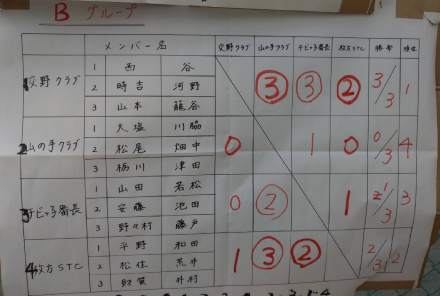 B グループ
メンバー名 交野クラブ 山の手クラブ チビっ子番長 枚方STC 勝敗 順位
1 交野クラブ
1 西 谷
2 時吉 河野 ③ ③ ② 3/3 1
3 山本 龍谷
2 山の手クラブ
1 大塩 川脇
2 松尾 畑中 0 1 0 0/3 4
3 栃川 津田
3 チビっ子番長
1 山田 若松
2 安藤 池田 0 ② 1 /3 3
3 野々村 藤戸
4 枚方STC
1 平野 和田
2 松住 荒井 1 ③ ② 2/3 2
3 井村